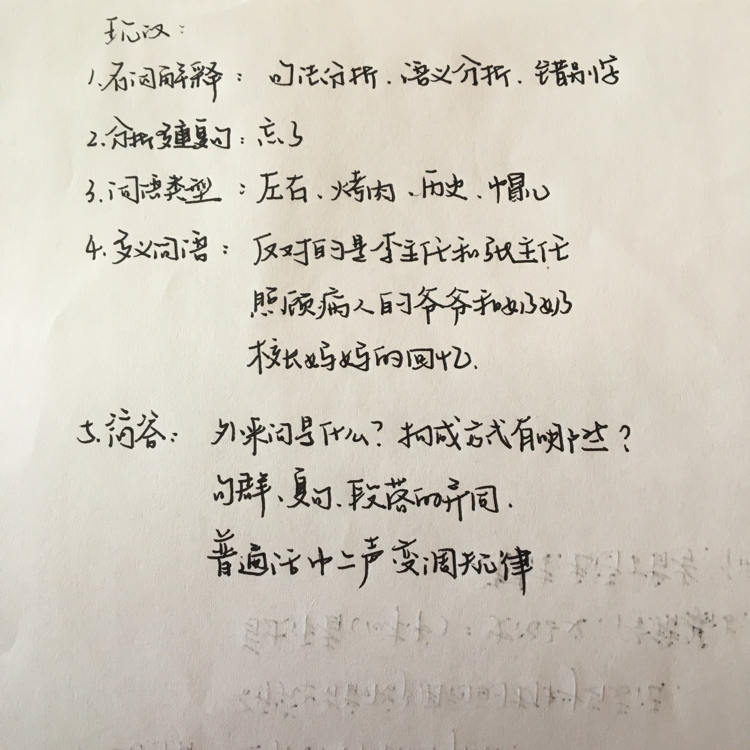 现汉：
1.名词解释：句法分析、语义分析、错别字
2.分析多重复句：忘了
3.词语类型：左右、烤肉、历史、帽儿
4.多义词语：反对的是李主任和张主任
照顾病人的爷爷和奶奶
校长妈妈的回忆.
5.简答：外来词是什么？构成方式有哪些？
句群、复句、段落的异同.
普通话中二声变调规律